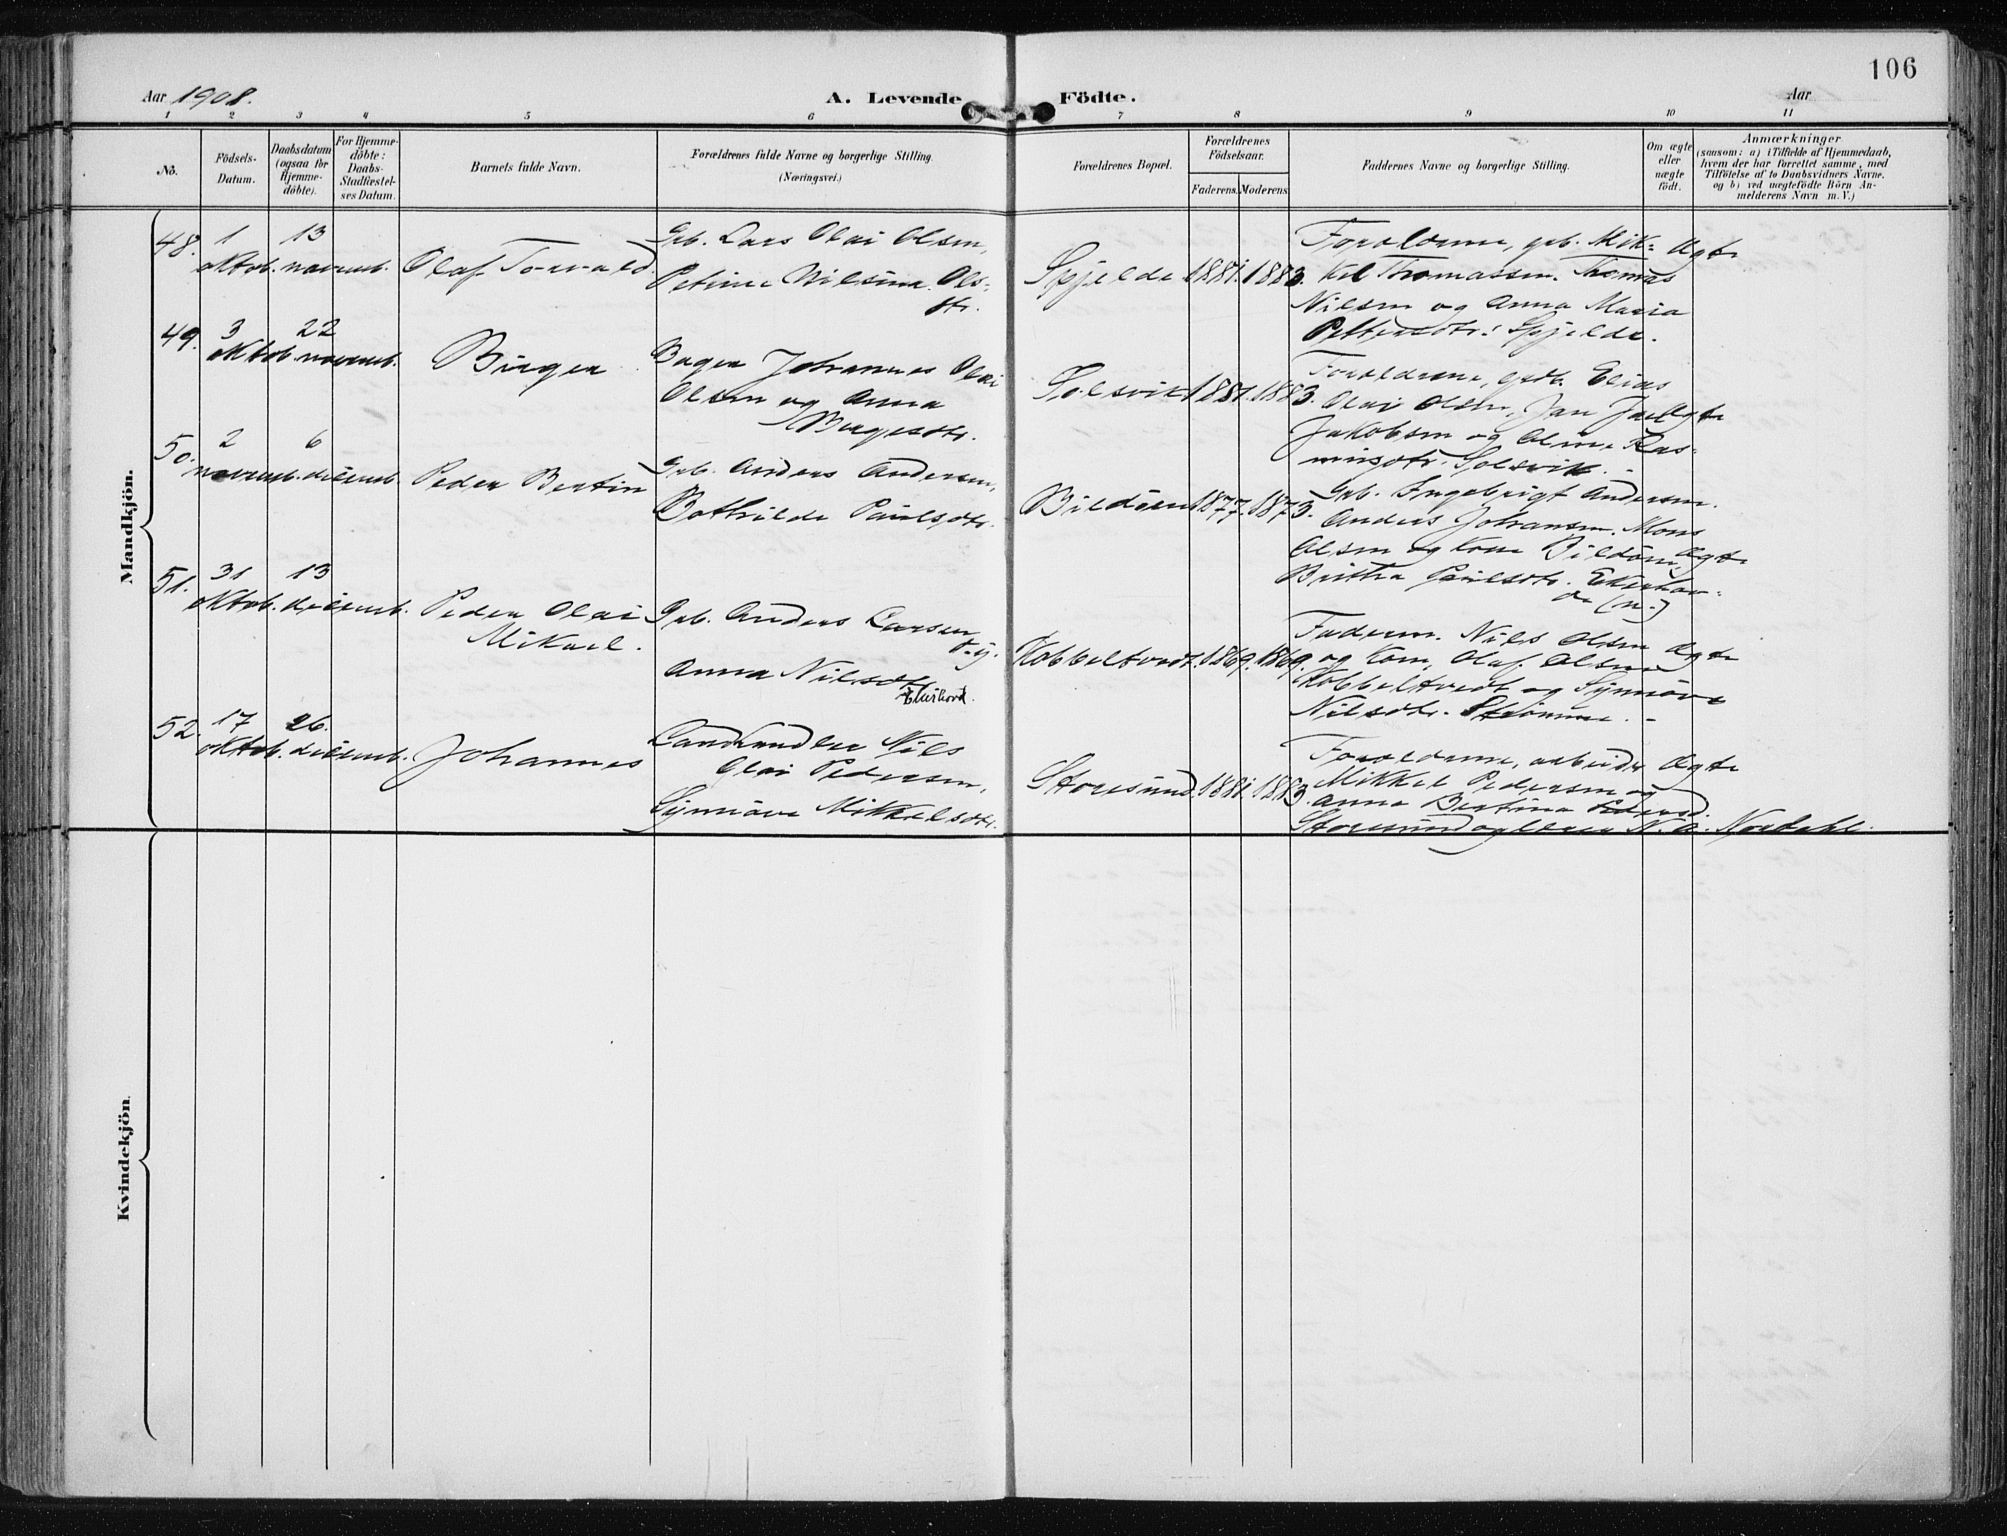 106
Aar 1908.
A. Levende Födte.
Aar
1 2 3 4 5 6 7 8 9 10 11
No.
Födsels-
Datum.
Daabsdatum
(ogsaa for
Hjemme-
döbte).
For Hjemme-
döbte:
Daabs-
Stadfæstel-
ses Datum.
Barnets fulde Navn.
Forældrenes fulde Navne og borgerlige Stilling.
(Næringsvei.)
Forældrenes Bopæl.
Forældrenes
Födselsaar.
Faderens. Moderens.
Faddernes Navne og borgerlige Stilling.
Om ægte
eller
uægte
födt.
Anmærkninger
(saasom: a) i Tilfælde af Hjemmedaab,
hvem der har forrettet samme, med
Tilföielse af to Daabsvidners Navne.
og b) ved uægtefödte Börn An-
melderens Navn m. V.)
Mandkjön.
48.
1
oktob.
13
novemb.
Olaf Torvald
Grb. Lars Olai Olsen,
Petrine Nilsina Ols-
dtr.
Spjelde 1881. 1883.
Forældrene, grb. Mik-
kel Thomassen. Thomas
Nilsen og Anna Maria
Pettersdtr. Spjelde.
Ægte
49.
3
oktob.
22
novemb.
Birger
Bager Johannes Olai
Olsen og Anna
Birgesdtr.
Solsvik 1881. 1883.
Forældrene, grb. Elias
Olai Olsen, Jan
Jakobsen og Oline Ras-
musdtr. Solsvik.
Ægte
50.
2
novemb.
6
decemb.
Peder Bertin
Grb. Anders Andersen,
Bothilde Paulsdtr.
Bildöen 1877. 1873.
Grb. Ingebrigt Andersen.
Anders Johansen. Mons
Olsen og Kone Bildöen,
Britha Paulsdtr.
Ægte
51.
31
oktob.
13
decemb.
Peder Olai
Mikael.
Grb. Anders Larsen
og
Anna Nilsdtr.
Kobbeltvedt. 1869. 1869.
Faderen. Nils Olsen
og Kone, Olaf Olsen
Kobbeltvedt og Synnöve
Nilsdtr. Strömme.
Ægte
52.
17
oktob.
26.
decemb.
Johannes
Landhandler Nils
Olai Pedersen,
Synnöve Mikkelsdtr.
Storesund. 1881. 1883.
Forældrene, arbeider
Mikkel Pedersen og
Anna Bertina Pedersd.
Storesund og lærer N. A. Nordahl.
Ægte
Kvindekjön.